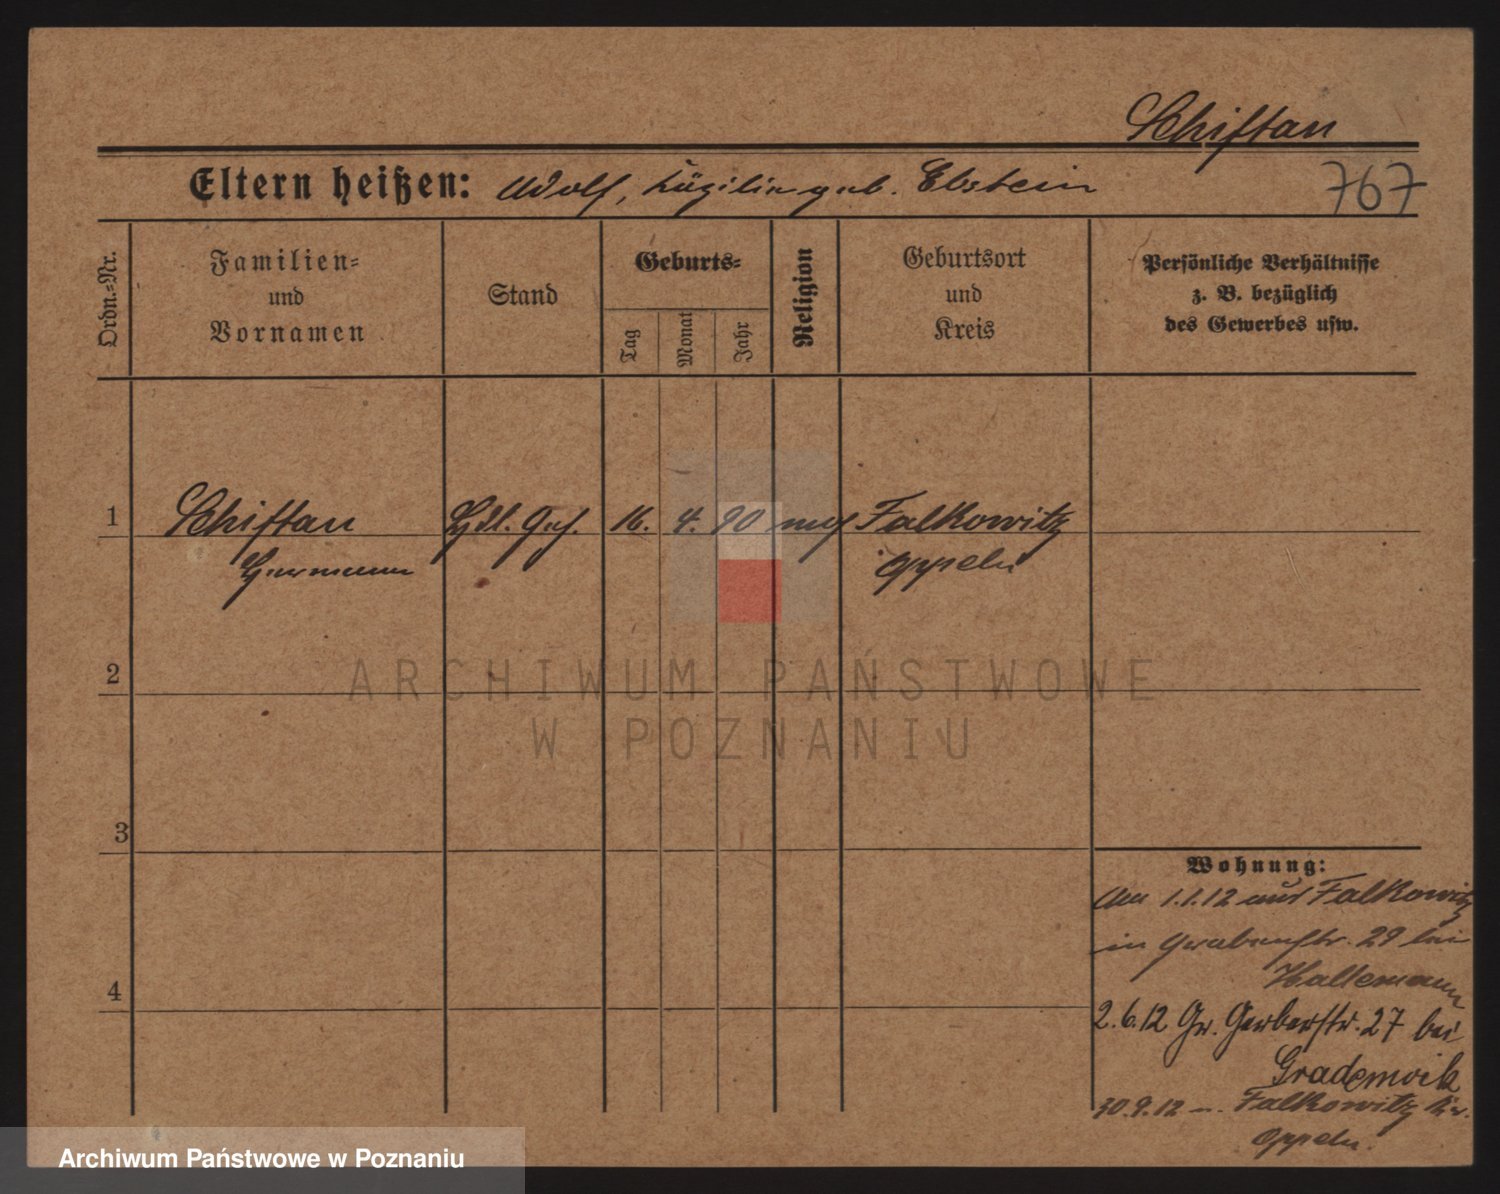 Schiftan
Eltern heißen: Adolf, Zäzilie geb. Ebstein
767
Ordn.-Nr.
Familien-
und
Vornamen
Stand
Geburts-
Tag
Monat
Jahr
Religion
Geburtsort
und
Kreis
Persönliche Verhältnisse
z. B. bezüglich
des Gewerbes usw.
1
Schiftan
Hermann
Hdl. Geh.
16.
4.
90
mos
Falkowitz
Oppeln
2
3
4
Wohnung:
Am 1.1.12 aus Falkowitz
in Grabenstr. 29 bei
Hallemann
2.6.12 Gr. Gerberstr. 27 bei
30.9.12 Falkowitz Kr.
Oppeln.
ARCHIWUM PAŃSTWOWE
W POZNANIU
Archiwum Państwowe w Poznaniu